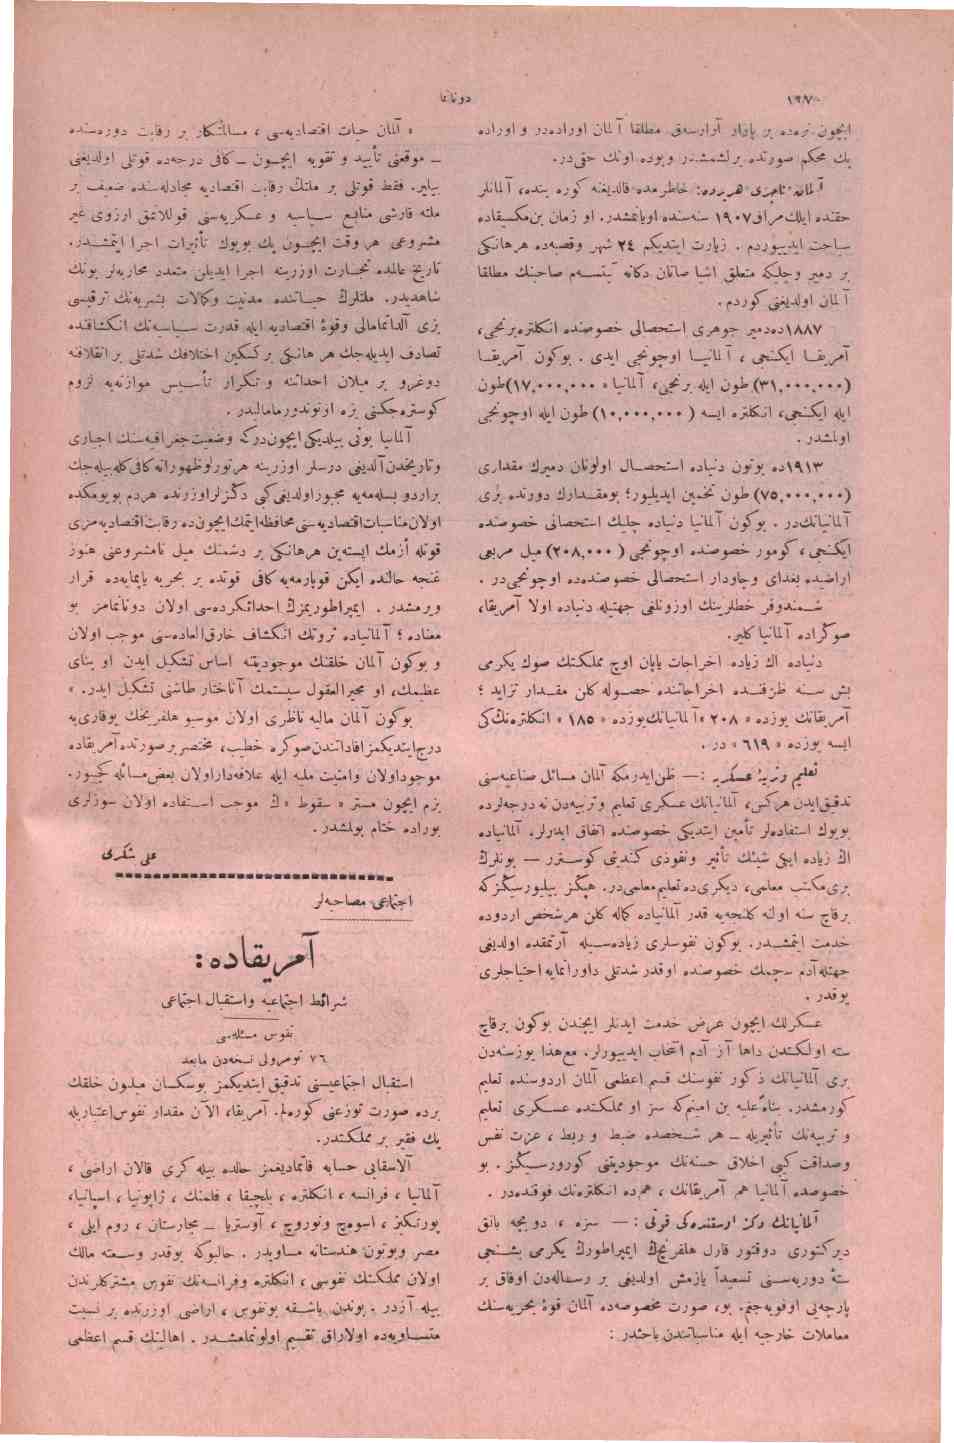 ١٢٧٠
دونانما
ایچون نره‌ده بر پازار آرارسه‌ق مطلقا آلمان اوراده‌در و اوراده
پك محكم صورتده یرلشمشدر وبوده اونك حقی‌در.
آلمانه تاجری هریرده: خاطرمده قالدیغنه كوره بنده، آلمانلر
حقنده ایلك مراق ١٩٠٧ سنه‌سنده اویانمشدر. او زمان بن مكسیقاده
سیاحت ایدییوردم . زیارت ایتدیكم ٢٤ شهر وقصبه‌ده هر هانكی
بر دمیر وچلیكه متعلق اشیا صاتان دكانه كیتسه‌م صاحبنك مطلقا
آلمان اولدیغنی كوردم .
١٨٨٧ده دمیر جوهری استحصالی خصوصنده انكلتره برنجی،
آمریقـا ایكنجی ، آلمانیـا اوچونجی ایدی . بوكون آمریقـا
(٣١,٠٠٠,٠٠٠) طون ایله برنجی، آلمانیا » ١٧,٠٠٠,٠٠٠)طون
ایله ایكنجی، انكلتره ایسه ( ١٠,٠٠٠,٠٠٠) طون ایله اوچونجی
اولمشدر .
١٩١٣ده بوتون دنیاده استحصـال اولونان دمیرك مقداری
(٧٥,٠٠٠,٠٠٠) طون تخمین ایدیلیور؛ بومقـدارك دورتده بری
آلمانیانك‌در . بوكون آلمانیا دنیاده چلیك استحصالی خصوصنده
ایكنجی، كومور خصوصنده اوچونجی ( ٢٠٨,٠٠٠) میل مربعی
اراضیده بغدای وچاودار استحصالی خصوصنده‌ده اوچونجی‌در .
شـمندوفر خطلرینك اوزونلغی جهتیله دنیاده اولا آمریقا،
صوكراده آلمانیا كلیر.
دنیاده اك زیاده اخراجات یاپان اوچ مملكتك صوك یكرمی
بش سـنه ظرفنـده اخراجاتنده حصـوله كلن مقـدار تزاید ؛
آمریقانك یوزده » ٢٠٨ «آلمانیانك یوزده » ١٨٥ « انكلتره‌نك‌كی
ایسه یوزده » ٦١٩ « در .
تعلیم وتربیهٔ عسكریه :ـــ ظن ایدرمكه آلمان مسائل صناعیه‌سنی
تدقیق ایدن هركس، آلمانیانك عسكری تعلیم وتربیه‌دن نه درجه‌لرده
بویوك استفاده‌لر تأمین ایتدیكی خصوصنده اتفاق ایدرلر. آلمانیاده
اك زیاده ایكی شیئك تأثیر ونفوذی كندیتی كوسـترر ـــ بونلرك
بری مكتب معلمی، دیكری‌ده تعلیم معلمی‌در. هپكز بیلیورسیكزكه
برقاچ سنه اولنه كلنجه‌یه قدر آلمانیاده كماله كلن هرشخص اردوده
خدمت ایتمشـدر. بوكون نفوسلری زیاده‌سـیله آرتمقده اولدیغی
جهتله آدم سچمك خصوصنده اوقدر شدتلی داورانمایه احتیاجلری
یوقدر .
عسكرلك ایچون عرض خدمت ایدنلر ایچندن بوكون برقاچ
سنه اولكندن داها آز آدم انتخاب ایدییورلر. مع‌هذا یوزسنه‌دن
بری آلمانیانك ذكور نفوسنك قسم اعظمی آلمان اردوسنده تعلیم
كورمشدر. بناءً علیه بن امینم كه سز او مملكتده عسـكری تعلیم
و تربیه‌نك تأثیریله ـ هر شـخصده ضبط و ربط ، عزت نفس
وصداقت كبی اخلاق حسنه‌نك موجودیتنی كورورسـیكز . بو
خصوصده آلمانیا هم آمریقانك ، هم‌ده انكلتره‌نك فوقنده‌در .
آلمانیانك دكز اوستنده‌كی قوتی : ـــ سزه ، دویچه بانق
دیركتوری دوقتور قارل هلفریچك ایمپراطورك یكرمی بشـنجی
سنهٔ دوریه‌سـنی تسعیداً یازمش اولدیغی بر رسـاله‌دن اوفاق بر
پارچه‌یی اوقویه‌جغم. بو، صورت مخصوصه‌ده آلمان قوهٔ بحریه‌سنك
معاملات خارجیه ایله مناسباتندن باحثدر :
» آلمان حیات اقتصادیه‌سی ، مسالمتكار بر رقابت دوره‌سـنده
ـ موقعنی تأیید و تقویه ایچـون ـ كافی درجه‌ده قوتلی اولدیغنی
بیلیر. فقط قوتلی بر ملتك رقابت اقتصادیه مجادله‌سـنده ضعیف بر
ملته قارشی منابع سـیاسیه و عسكریه‌سنی قوللانمق آرزوی غیر
مشروعی هر وقت ایچـون پك بویوك تأثیرات اجرا ایتمشـدر.
تاریخ عالمده تجـارت اوزرینه اجرا ایدیلن متعدد محاربه‌لر بونك
شاهدیدر. ملتلرك حیـاتنده مدنیت وكمالات بشریه‌نك ترقیسی
بزی آلداتمامالی وقوهٔ اقتصادیه ایله قدرت سـیاسیه‌نك انكشافنده
تصادف ایدیله‌جك هر هانكی بر كسكین اختلافك شدتلی بر انقلابه
دوغرو بر میلان احداثنه و تكرار تأسـیس موازنه‌یه لزوم
كوستره‌جكنی بزه اونوتدورمامالیدر.
آلمانیا بونی بیلدیكی ایچون‌دركه وضعیت جغرافیه‌سنك اجباری
وتاریخدن آلدیغی درسلر اوزرینه هر تورلو ظهوراته كافی كله‌بیله‌جك
بر اردو بسله‌مه‌یه مجبور اولدیغی كبی دكزلر اوزرنده هردم بویومكده
اولان مناسبات اقتصادیه‌سنی محافظه ایتمك ایچون‌ده رقابت اقتصادیه مزی
قوتله ازمك ایسته‌ین هر هانكی بر دشمنك میل نامشروعنی هنوز
غنجه حالنده ایكن قوپارمه‌یه كافی قوتده بر بحریه یاپمایه‌ده قرار
ویرمشدر . ایمپراطوریمزك احداثكرده‌سی اولان دونانمامز بو
معناده ؛ آلمانیاده ثروتك انكشاف خارق‌العاده‌سنی موجب اولان
و بوكون آلمان خلقنك موجودیتنه اساس تشكیل ایدن او بنای
عظیمك، او محیرالعقول سیستمك آناختار طاشنی تشكیل ایدر. «
بوكون آلمان مالیه ناظری اولان موسیو هلفریخك یوقاری‌یه
درج ایتدیكمز افاداتندن صوكره خطیب، مختصر بر صورتده آمریقاده
موجود اولان وامنیت ملیه ایله علاقه‌دار اولان بعض مسائله كچیور.
بزم ایچون مستر » سقوط « ك موجب اسـتفاده اولان سوزلری
بوراده ختام بولمشدر.
علی شكری
اجتماعی مصاحبه‌لر
آمریقاده :
شرائط اجتماعیه واستقبال اجتماعی
نفوس مسئله‌سی
٧٦ نومرولی نسخه‌دن مابعد
استقبال اجتماعیسنی تدقیق ایتدیكمز یوسكسان میلیون خلقك
یرده صورت توزعنی كوره‌لم. آمریقا، الآن مقدار نفوس اعتباریله
پك فقیر بر مملكتدر.
آلاسقایی حسابه قاتمادیغمز حالده بیله كری قالان اراضی ،
آلمانیا ، فرانسه ، انكلتره ، بلچیقا ، فلمنك ، ژاپونیا ، اسپانیا،
پورتكیز ، اسوچ ونوروچ ، آوستریا ـ مجارستان ، روم ایلی ،
مصر وبوتون هندستانه مساویدر. حالبوكه بوقدر وسـعته مالك
اولان مملكتك نفوسی ، انكلتره وفرانسه‌نك نفوس مشتركلرندن
بیله آزدر . بوندن باشـقه بونفوس ، اراضی اوزرنده بر نسبت
متسـاویه‌ده اولاراق تقسـیم اولونمامشـدر . اهالینك قسم اعظمی